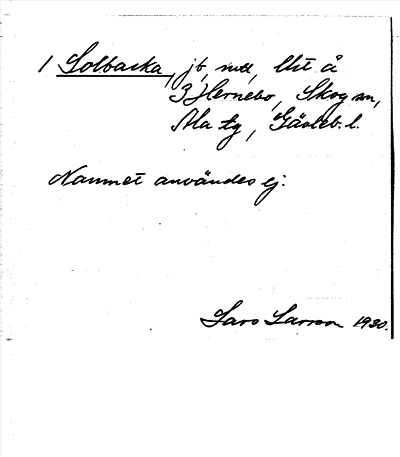 1 Solbacka, jb, mtl, Utst å
3 Hernebo, Skog sn,
Ala tg, Gävleb. l.
Namnet användes ej.
Lars Larsson 1930.